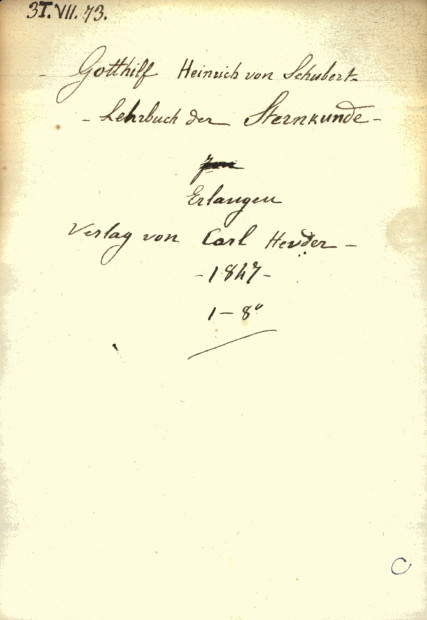 31.VII.73.
- Gotthilf Heinrich von Schubert -
- Lehrbuch der Sternkunde -
Erlangen
Verlag von Carl Heyder -
- 1847 -
1-8°
C